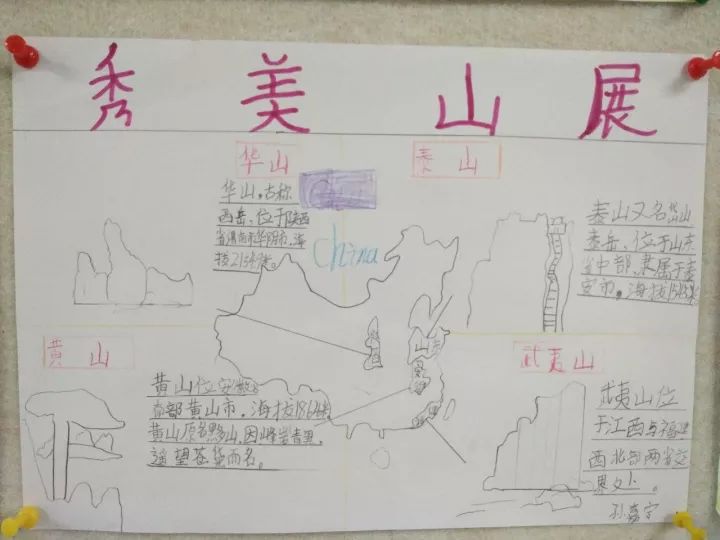 秀美山展
华山
华山,古称
西岳、位于陕西
省渭南市华阴市,海
拔2154米。
泰山
泰山又名岱山
泰岳、位于山东
省中部、隶属于泰
安市。海拔1545米
China
山东
黄山
黄山位安徽省
南部黄山市,海拔1864米
黄山原名黟山,因峰岩青黑,
遥望苍黛而名。
武夷山
武夷山位
于江西与福建
西北部两省交
界处。
孙嘉宇